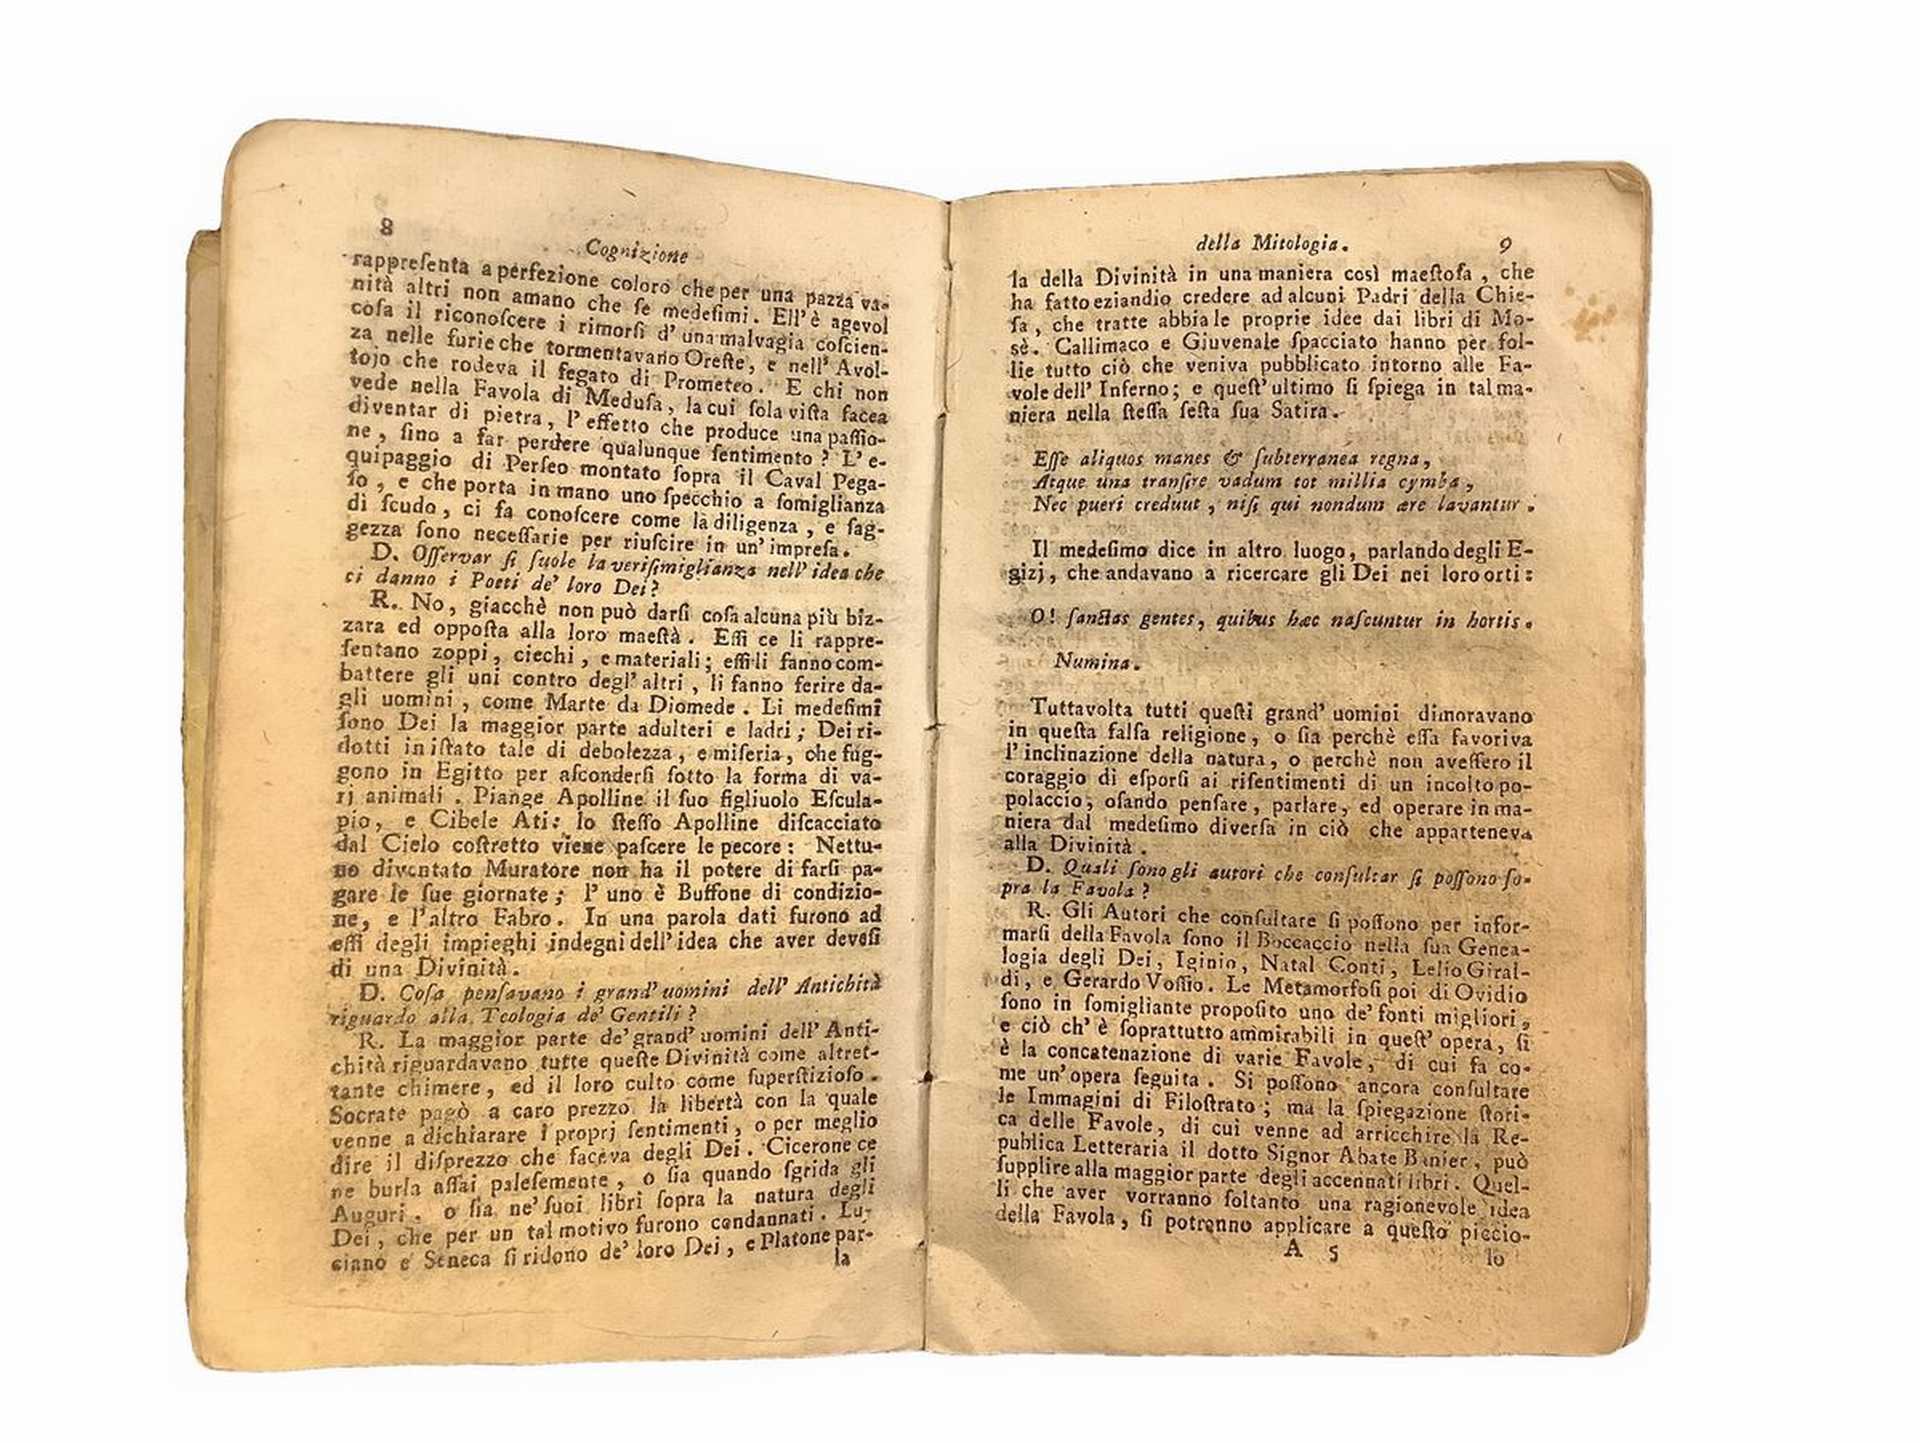 8
Cognizione
rappreſenta a perfezione coloro che per una pazza va-
nità altri non amano che ſe medeſimi. Ell'è agevol
coſa il riconoſcere i rimorſi d'una malvagia coſcien-
za nelle furie che tormentavano Oreſte, e nell' Avol-
tojo che rodeva il fegato di Prometeo. E chi non
vede nella Favola di Meduſa, la cui ſola viſta facea
diventar di pietra, l'effetto che produce una paſſio-
ne, ſino a far perdere qualunque ſentimento? L' e-
quipaggio di Perſeo montato ſopra il Caval Pega-
ſo, e che porta in mano uno ſpecchio a ſomiglianza
di ſcudo, ci fa conoſcere come la diligenza, e ſag-
gezza ſono neceſſarie per riuſcire in un' impreſa.
D. Oſſervar ſi ſuole la veriſimiglianza nell' idea che
ci danno i Poeti de' loro Dei?
R. No, giacchè non può darſi coſa alcuna più biz-
zara ed oppoſta alla loro maeſtà. Eſſi ce li rappre-
ſentano zoppi, ciechi, e materiali; eſſi li fanno com-
battere gli uni contro degl' altri, li fanno ferire da-
gli uomini, come Marte da Diomede. Li medeſimi
ſono Dei la maggior parte adulteri e ladri; Dei ri-
dotti in iſtato tale di debolezza, e miſeria, che fug-
gono in Egitto per aſconderſi ſotto la forma di va-
rj animali. Piange Apolline il ſuo figliuolo Eſcula-
pio, e Cibele Ati: lo ſteſſo Apolline diſcacciato
dal Cielo coſtretto viene paſcere le pecore: Nettu-
no diventato Muratore non ha il potere di farſi pa-
gare le ſue giornate; l' uno è Buffone di condizio-
ne, e l'altro Fabro. In una parola dati furono ad
eſſi degli impieghi indegni dell' idea che aver deveſi
di una Divinità.
D. Coſa penſavano i grand' uomini dell' Antichità
riguardo alla Teologia de' Gentili?
R. La maggior parte de' grand' uomini dell' Anti-
chità riguardavano tutte queſte Divinità come altret-
tante chimere, ed il loro culto come ſuperſtizioſo.
Socrate pagò a caro prezzo la libertà con la quale
venne a dichiarare i proprj ſentimenti, o per meglio
dire il diſprezzo che faceva degli Dei. Cicerone ce
ne burla aſſai paleſemente, o ſia quando ſgrida gli
Auguri, o ſia ne' ſuoi libri ſopra la natura degli
Dei, che per un tal motivo furono condannati. Lu-
ciano e Seneca ſi ridono de' loro Dei, e Platone par-
la
della Mitologia.
9
la della Divinità in una maniera così maeſtoſa, che
ha fatto eziandio credere ad alcuni Padri della Chie-
ſa, che tratte abbia le proprie idee dai libri di Mo-
sè. Callimaco e Giuvenale ſpacciato hanno per fol-
lie tutto ciò che veniva pubblicato intorno alle Fa-
vole dell' Inferno; e queſt' ultimo ſi ſpiega in tal ma-
niera nella ſteſſa ſeſta ſua Satira.
Eſſe aliquos manes & ſubterranea regna,
Atque una tranſire vadum tot millia cymba,
Nec pueri creduut, niſi qui nondum ære lavantur.
Il medeſimo dice in altro luogo, parlando degli E-
gizj, che andavano a ricercare gli Dei nei loro orti:
O! ſanctas gentes, quibus hæc naſcuntur in hortis.
Numina.
Tuttavolta tutti queſti grand' uomini dimoravano
in queſta falſa religione, o ſia perchè eſſa favoriva
l' inclinazione della natura, o perchè non aveſſero il
coraggio di eſporſi ai riſentimenti di un incolto po-
polaccio, oſando penſare, parlare, ed operare in ma-
niera dal medeſimo diverſa in ciò che apparteneva
alla Divinità.
D. Quali ſono gli autori che conſultar ſi poſſono ſo-
pra la Favola?
R. Gli Autori che conſultare ſi poſſono per infor-
marſi della Favola ſono il Boccaccio nella ſua Genea-
logia degli Dei, Iginio, Natal Conti, Lelio Giral-
di, e Gerardo Voſſio. Le Metamorfoſi poi di Ovidio
ſono in ſomigliante propoſito uno de' fonti migliori,
e ciò ch' è ſoprattutto ammirabili in queſt' opera, ſi
è la concatenazione di varie Favole, di cui fa co-
me un'opera ſeguita. Si poſſono ancora conſultare
le Immagini di Filoſtrato; ma la ſpiegazione ſtori-
ca delle Favole, di cui venne ad arricchire la Re-
publica Letteraria il dotto Signor Abate Banier, può
ſupplire alla maggior parte degli accennati libri. Quel-
li che aver vorranno ſoltanto una ragionevole idea
della Favola, ſi potranno applicare a queſto piccio-
A 5
lo